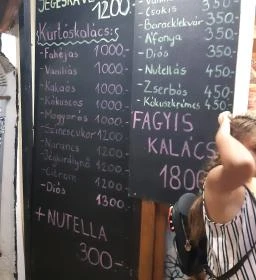 JEGESKÁVÉ
1200.-
Kürtőskalács:
- Fahéjas 1000.-
- Vaníliás 1000.-
- Kakaós 1000.-
- Kókuszos 1000.-
- Mogyorós 1000.-
- Színescukor 1200.-
- Narancs 1200.-
- Jégkirálynő 1200.-
- Citrom 1200.-
- Diós 1300.-
+ NUTELLA
300.-
- Csokis 350.-
- Baracklekvár 350.-
- Áfonya 350.-
- Diós 350.-
- Nutellás 450.-
- Zserbós 450.-
- Kókuszkrémes 450.-
FAGYIS
KALÁCS
1800